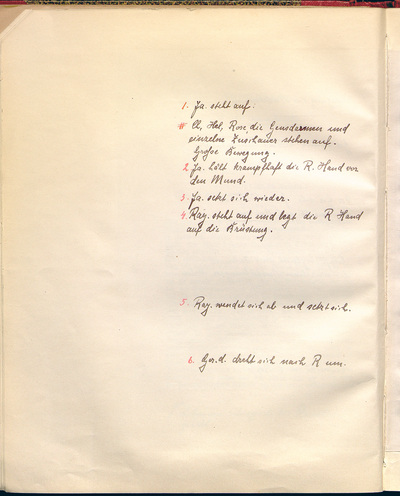 1. Ja. steht auf:
# Ch, Hel, Rose, die Gensdarmen und
einzelne Zuschauer stehen auf.
Große Bewegung.
2. Ja. hält krampfhaft die R. Hand vor
den Mund.
3. Ja. setzt sich wieder.
4. Ray. steht auf und legt die R Hand
auf die Brüstung.
5. Ray. wendet sich ab und setzt sich.
6. dreht sich nach R um.